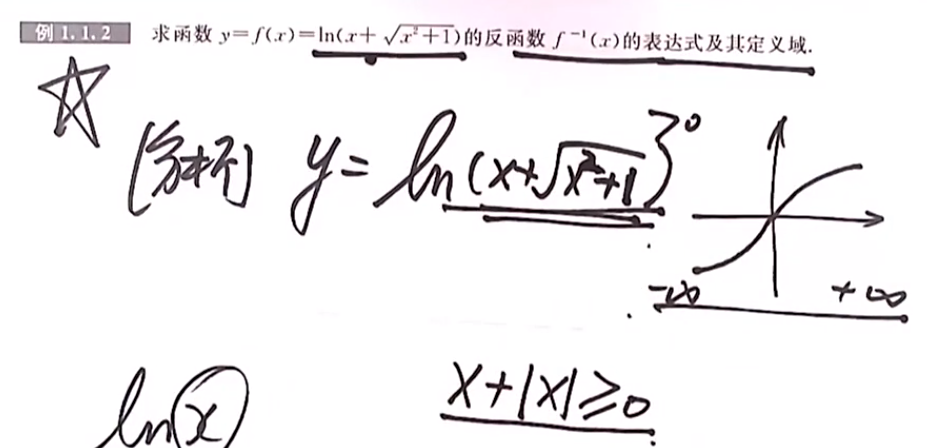 例 1.1.2 求函数 y=f(x)=ln(x+√(x²+1))的反函数 f⁻¹(x)的表达式及其定义域.
[分析] y=ln(x+√(x²+1))>0
-∞ +∞
ln(x) x+|x|≥0